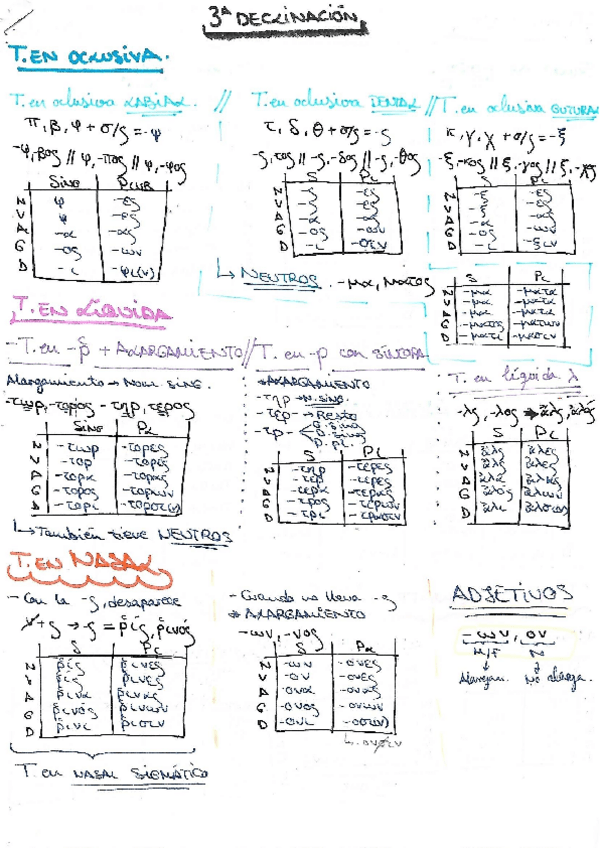 3ª DECLINACIÓN
T. EN OCLUSIVA.
T. en oclusiva LABIAL. //
π, β, φ + σ/ς = -ψ
-ψ, βος // ψ, -πος // ψ, -φος
Sing Plur
N ψ -ες
V ψ -ες
A -α -ας
G -ος -ων
D -ι -ψι(ν)
T. en oclusiva DENTAL //
τ, δ, θ + σ/ς = -ς
-ς, τος // -ς, -δος // -ς, -θος
S PL
N -ς -ες
V -ς -ες
A -α -ας
G -ος -ων
D -ι -σιν
T. en oclusiva GUTURAL
κ, γ, χ + σ/ς = -ξ
-ξ, -κος // ξ, -γος // ξ, -χος
S PL
N -ξ -ες
V -ξ -ες
A -α -ας
G -ος -ων
D -ι -ξιν
↳ NEUTROS. -μα, ματος
S PL
N -μα -ματα
V -μα -ματα
A -μα -ματα
G -ματος -ματων
D -ματι -μασιν
T. EN LÍQUIDA
- T. en -ρ + ALARGAMIENTO //
Alargamiento → Nom sing.
-τωρ, -τορος - τηρ, τερος
Sing PL
N -τωρ -τορες
V -τορ -τορες
A -τορα -τορας
G -τορος -τορων
D -τορι -τορσι(ν)
↳ También tiene NEUTROS
T. en -ρ con SÍNCOPA
* ALARGAMIENTO
-τηρ → N. sing
-τερ → Resto
-τρ - G. sing
D. sing
D. pl.
S PL
N -τηρ -τερες
V -τερ -τερες
A -τερα -τερας
G -τρος -τέρων
D -τρι -τρασιν
T. en líquida λ
-λς, -λος → ἅλς, ἁλός
S PL
N ἅλς ἅλες
V ἅλς ἅλες
A ἅλα ἅλας
G ἁλός ἁλων
D ἁλι ἁλσιν
T. EN NASAL
- Con la -ς, desaparece
ν + ς → ς = ῥίς, ῥινός
S PL
N ῥίς ῥινες
V ῥίς ῥινες
A ῥινα ῥινας
G ῥινός ῥινων
D ῥινι ῥισιν
T. en NASAL SIGMÁTICO
- Cuando no lleva -ς
* ALARGAMIENTO
-ων, -νος
S PL
N -ων -ονες
V -ον -ονες
A -ονα -ονας
G -ονος -ονων
D -ονι -οσι(ν)
↳ -ονσιν
ADJETIVOS
-ων, ον
M/F N
Alargan. No alarga.